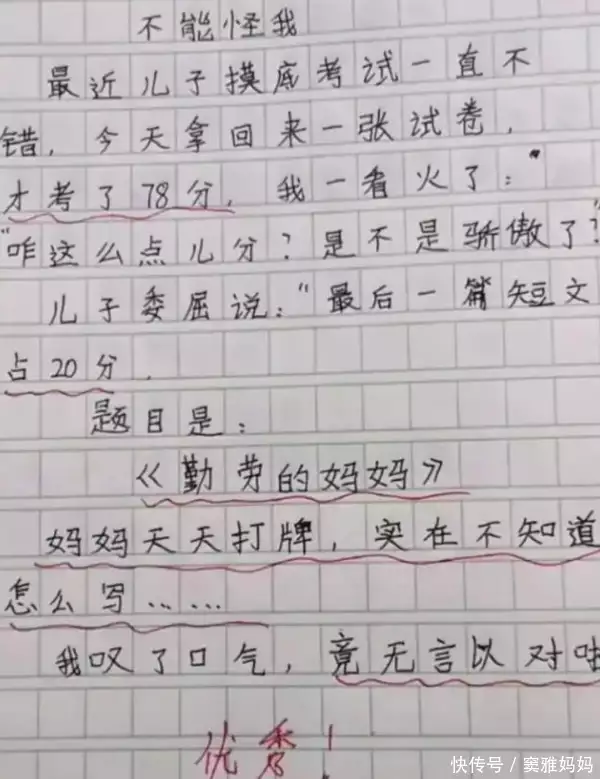 不能怪我
最近儿子摸底考试一直不
错，今天拿回来一张试卷，
才考了78分，我一看火了："
"咋这么点儿分？是不是骄傲了？"
儿子委屈说："最后一篇短文
占20分.
题目是：
《勤劳的妈妈》
妈妈天天打牌，实在不知道
怎么写……
我叹了口气，竟无言以对
优秀！
快传号／窦雅妈妈